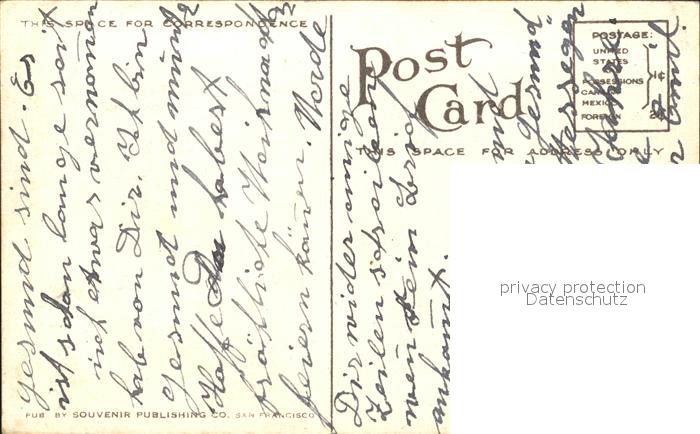 THIS SPACE FOR CORRESPONDENCE
Post Card
THIS SPACE FOR ADDRESS ONLY
POSTAGE:
UNITED
STATES
POSSESSIONS
1¢
MEXICO
FOREIGN 2¢
gesund sind. Es
ist schon lange seit
ich etwas vernomen
hab von Dir. Ich bin
gesund und munter
Hoffe Du habest
fröhliche Weihnacht
feiern könen. Werde
Dir wider einige
Zeilen schreiben
wen Dein Brief
ankomt.
privacy protection
Datenschutz
PUB BY SOUVENIR PUBLISHING CO. SAN FRANCISCO